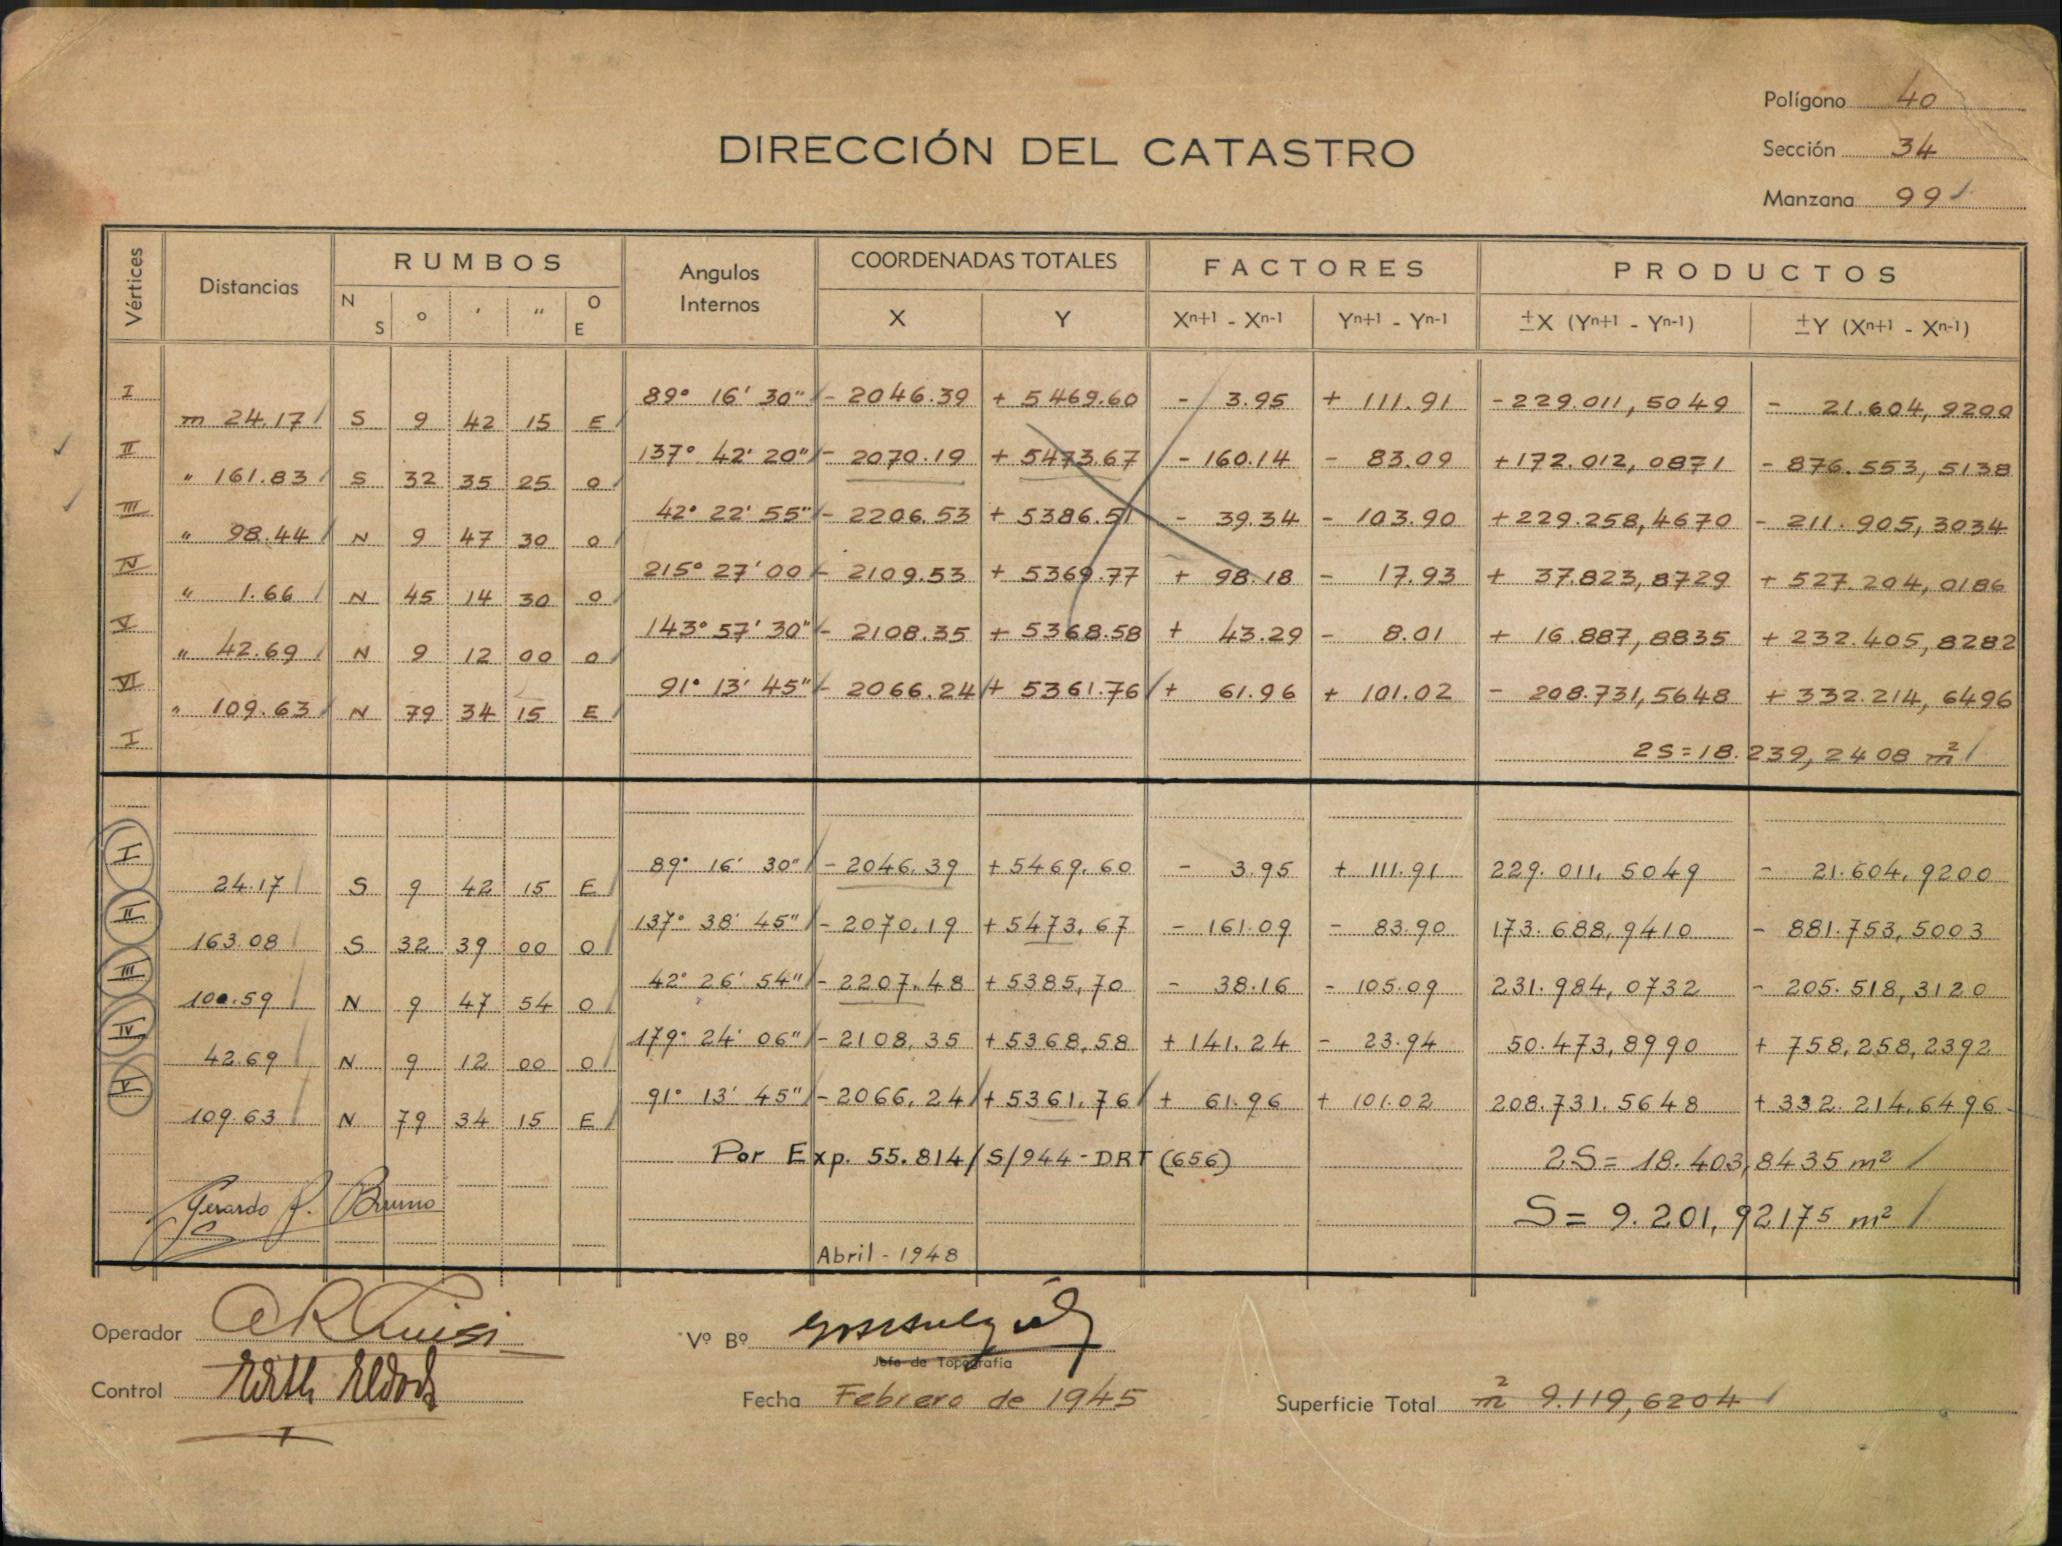 Polígono 40
DIRECCIÓN DEL CATASTRO
Sección 34
Manzana 99
Vértices Distancias RUMBOS Angulos Internos COORDENADAS TOTALES FACTORES PRODUCTOS
N S ° ' " O E X Y Xn+1 - Xn-1 Yn+1 - Yn-1 ±X (Yn+1 - Yn-1) ±Y (Xn+1 - Xn-1)
I 89° 16' 30" - 2046.39 + 5469.60 - 3.95 + 111.91 - 229.011,5049 - 21.604,9200
m 24.17 S 9 42 15 E
II 137° 42' 20" - 2070.19 + 5473.67 - 160.14 - 83.09 + 172.012,0871 - 876.553,5138
" 161.83 S 32 35 25 O
III 42° 22' 55" - 2206.53 + 5386.51 - 39.34 - 103.90 + 229.258,4670 - 211.905,3034
" 98.44 N 9 47 30 O
IV 215° 27' 00 - 2109.53 + 5369.77 + 98.18 - 17.93 + 37.823,8729 + 527.204,0186
" 1.66 N 45 14 30 O
V 143° 57' 30" - 2108.35 + 5368.58 + 43.29 - 8.01 + 16.887,8835 + 232.405,8282
" 42.69 N 9 12 00 O
VI 91° 13' 45" - 2066.24 + 5361.76 + 61.96 + 101.02 - 208.731,5648 + 332.214,6496
" 109.63 N 79 34 15 E
I 2S=18.239,2408 m²
I 89° 16' 30" - 2046.39 +5469.60 - 3.95 + 111.91 229.011,5049 - 21.604,9200
24.17 S 9 42 15 E
II 137° 38' 45" - 2070.19 +5473,67 - 161.09 - 83.90 173.688,9410 - 881.753,5003
163.08 S 32 39 00 O
III 42° 26' 54" - 2207.48 +5385,70 - 38.16 - 105.09 231.984,0732 - 205.518,3120
100.59 N 9 47 54 O
IV 179° 24' 06" - 2108,35 +5368,58 + 141.24 - 23.94 50.473,8990 + 758,258,2392
42.69 N 9 12 00 O
V 91° 13' 45" - 2066,24 +5361.76 + 61.96 + 101.02 208.731.5648 + 332.214.6496
109.63 N 79 34 15 E
Por Exp. 55.814/S/944-DRT (656) 2S= 18.403,8435 m²
Gerardo Bruno S= 9.201,92175 m²
Abril - 1948
Operador
Vº Bº
Jefe de Topografía
Control
Fecha Febrero de 1945
Superficie Total m² 9.119,6204